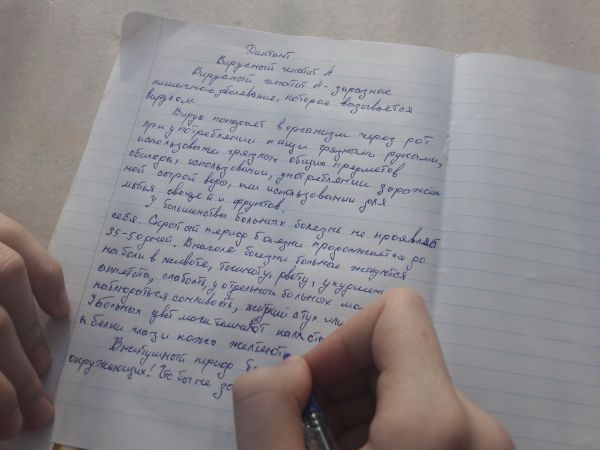 Диктант
Вирусный гепатит А
Вирусный гепатит А - заразное
кишечное заболевание, которое вызывается
вирусом.
Вирус попадает в организм через рот
при употреблении пищи грязными руками,
использовании грязных общих предметов
обихода, использовании, употреблении заражён
ной сырой воды, или использовании для
мытья овощей и фруктов.
У большинства больных болезнь не проявляет
себя. Скрытый период болезни продолжается до
35-50 дней. В начале болезни больные жалуются
на боли в животе, тошноту, рвоту, ухудшение
аппетита, слабость, у отдельных больных мо
наблюдаться сонливость, жидкий стул или
У больных цвет мочи темнеет кал
а белки глаз и кожа желтеют
В желтушный период
окружающих! Что бы не за